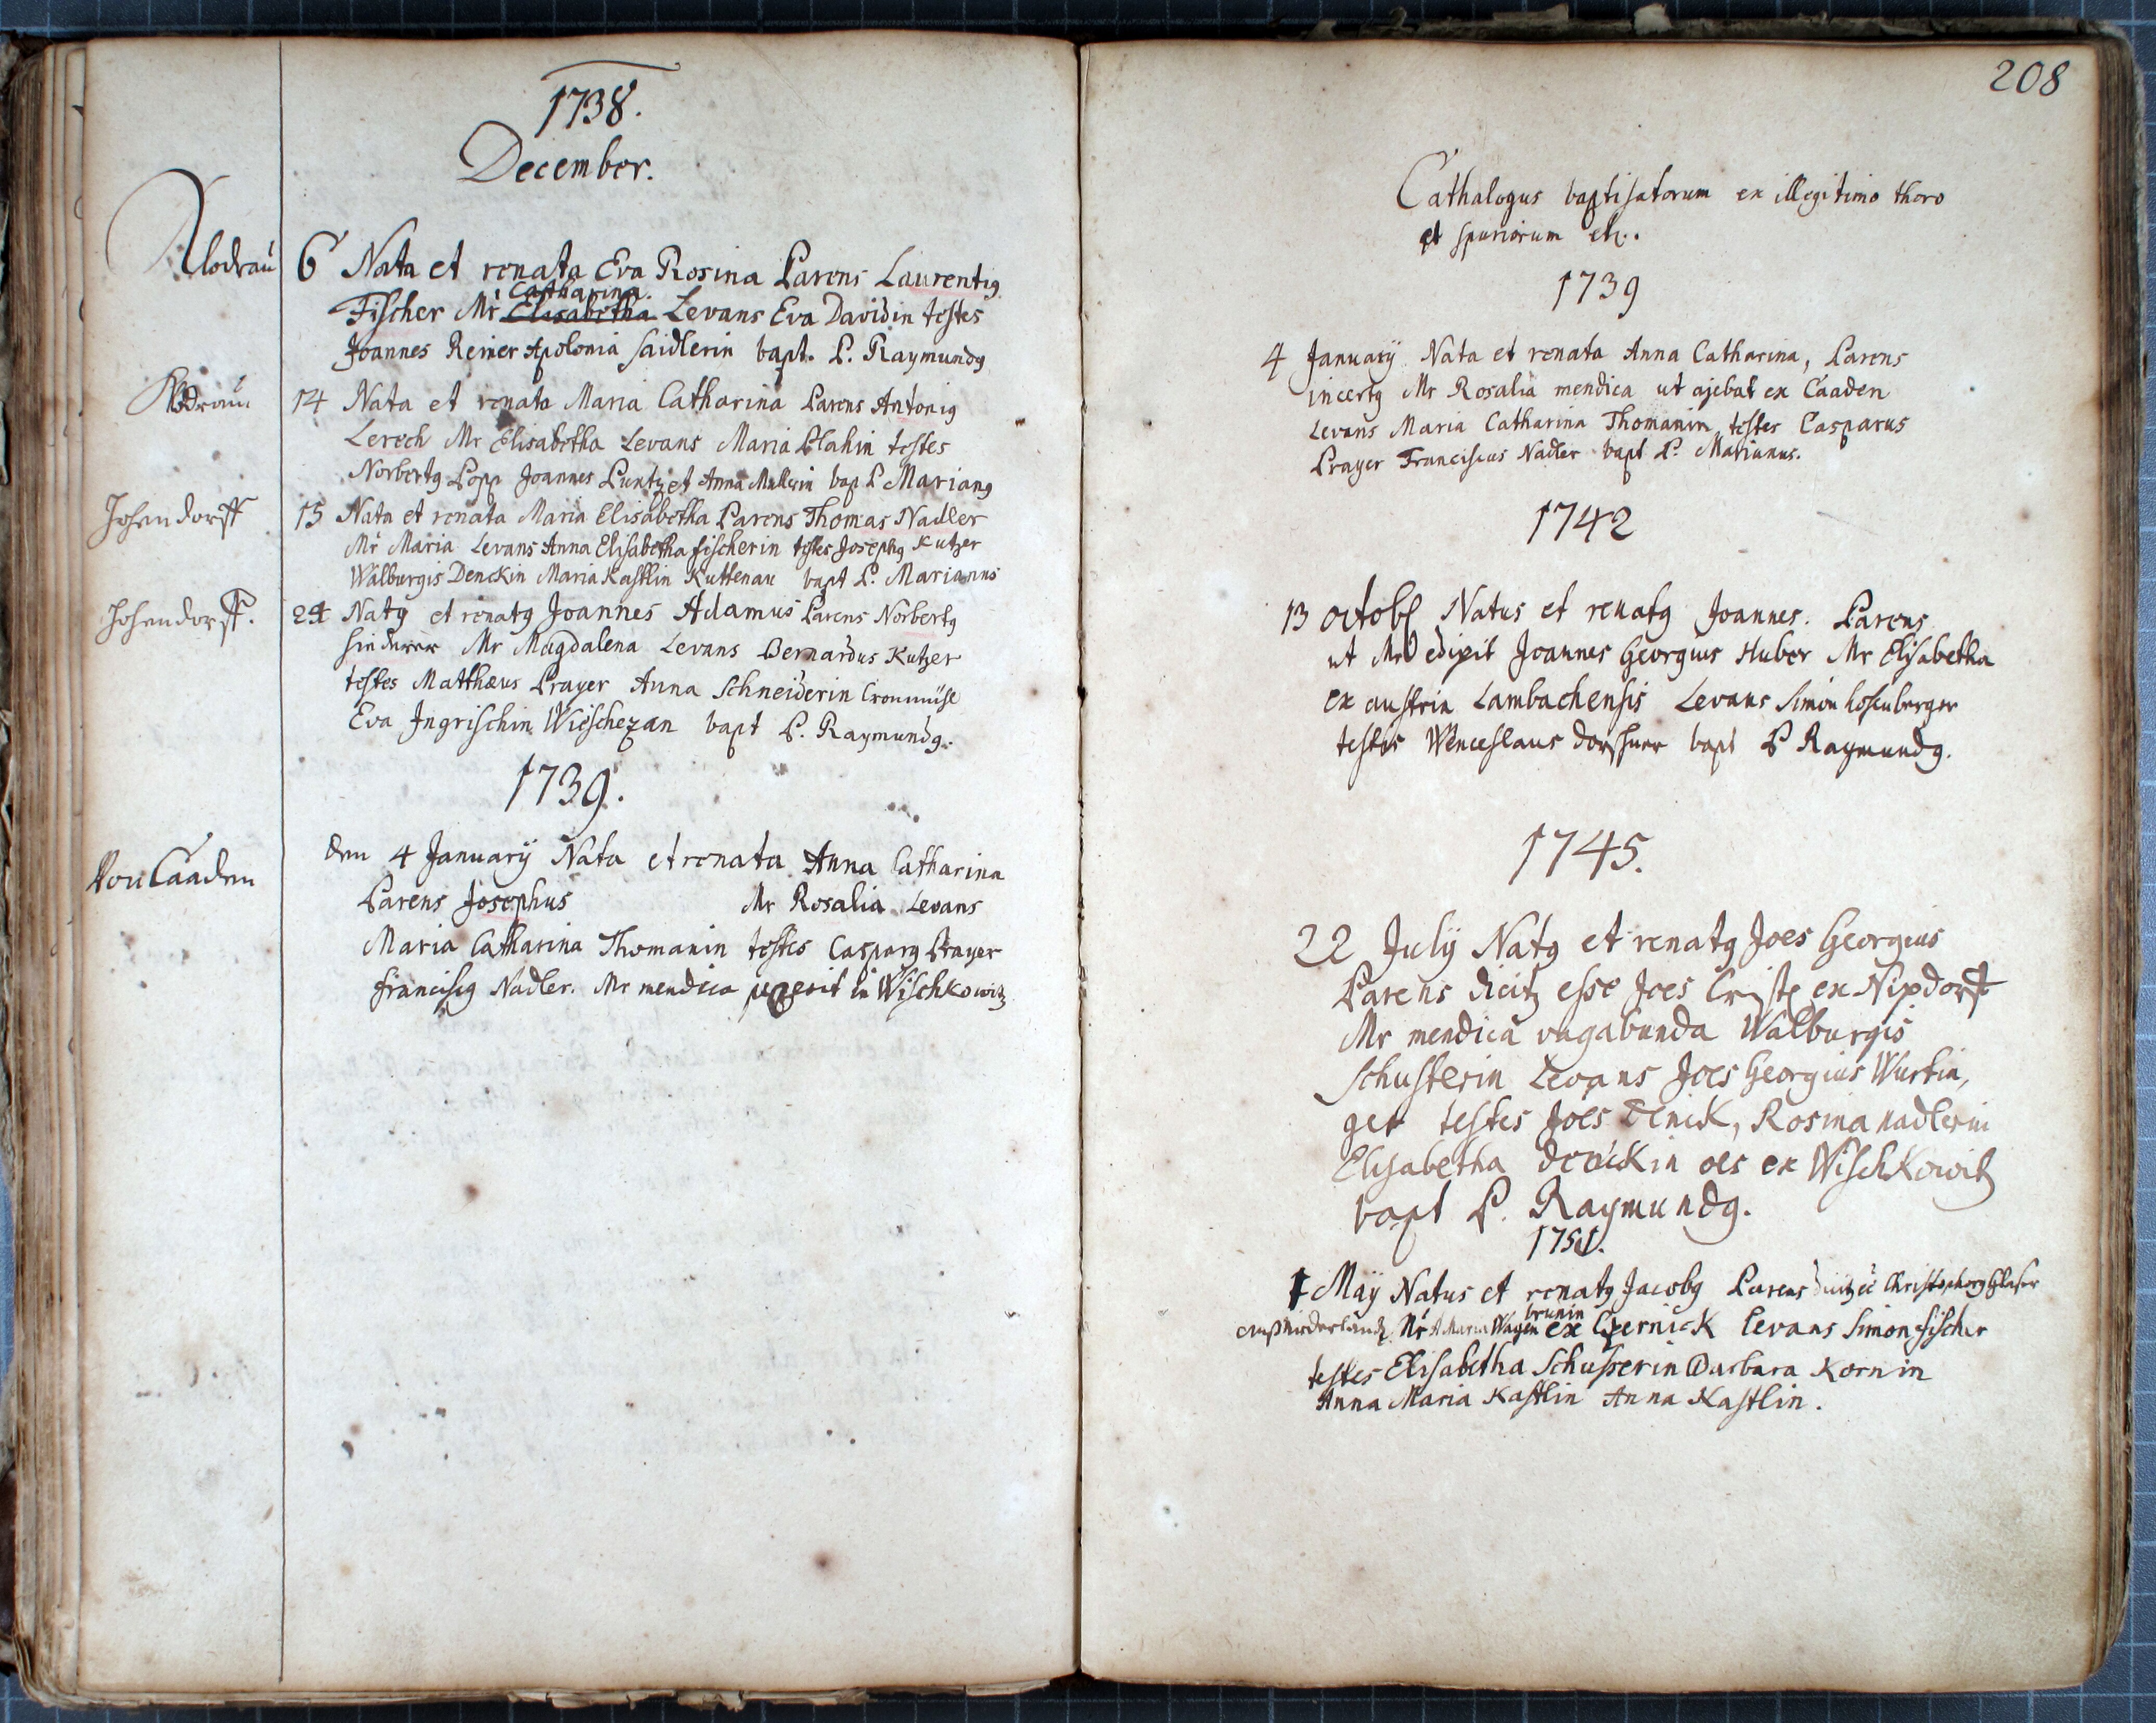 1738.
December.
Alodrau 6 Nata et renata Eva Rosina Parens Laurentig
Catharina.
Fischer Mr Elisabetha Levans Eva Davidin testes
Joannes Reiner Apolonia Saidlerin bapt. P. Raymundg
14 Nata et renata Maria Catharina Parens Antonig
Lerech Mr Elisabetha Levans Maria Plahin testes
Norbertg Popp Joannes Puntz et Anna Mullerin bap P Mariang
Johendorff 15 Nata et renata Maria Elisabetha Parens Thomas Nadler
Mr Maria Levans Anna Elisabetha fischerin testes Josephg Kutzer
Walburgis Denckin Maria Kastlin Kuttenau bapt P. Marianus
Johendorff. 24 Natg et renatg Joannes Adamus Parens Norbertg
Mr Magdalena Levans Bernardus Kutzer
testes Matthæus Prayer Anna Schneiderin
Eva Ingrischin Wieschezan bapt P. Raymundg.
1739.
Von Caaden den 4 Januarÿ Nata et renata Anna Catharina
Parens Josephus Mr Rosalia Levans
Maria Catharina Thomanin testes Casparg Prayer
Franciscg Nadler. Mr mendica in Wischkowitz
208
Cathalogus baptisatorum ex illegitimo thoro
et spuriorum etc.
1739
4 Januarÿ Nata et renata Anna Catharina, Parens
incertg Mr Rosalia mendica ut ajebat ex Caaden
Levans Maria Catharina Thomanin, testes Casparus
Prayer Franciscus Nadler bapt P. Marianus.
1742
13 octob Natus et renatg Joannes. Parens
ut Mr edixit Joannes Georgius Huber Mr Elisabetha
ex austria Lambachensis Levans Simon hosenberger
testes Wenceslaus bapt P Raymundg.
1745.
22 Julÿ Natg et renatg Joes Georgius
Parens dicitg esse Joes ex Nixdorff
Mr mendica vagabunda Walburgis
Schusterin Levans Joes Georgius Wurtin,
ger testes Joes Denck, Rosina nadlerin
Elisabetha denckin oes ex Wischkowitz
bapt P. Raymundg.
1751.
1 Maÿ Natus et renatg Jacobg Parens Christophorg glaser
brunin
Mr A Maria Wagen ex Czernick Levans Simon fischer
testes Elisabetha Schusserin Barbara Kornin
Anna Maria Kastlin Anna Kastlin.